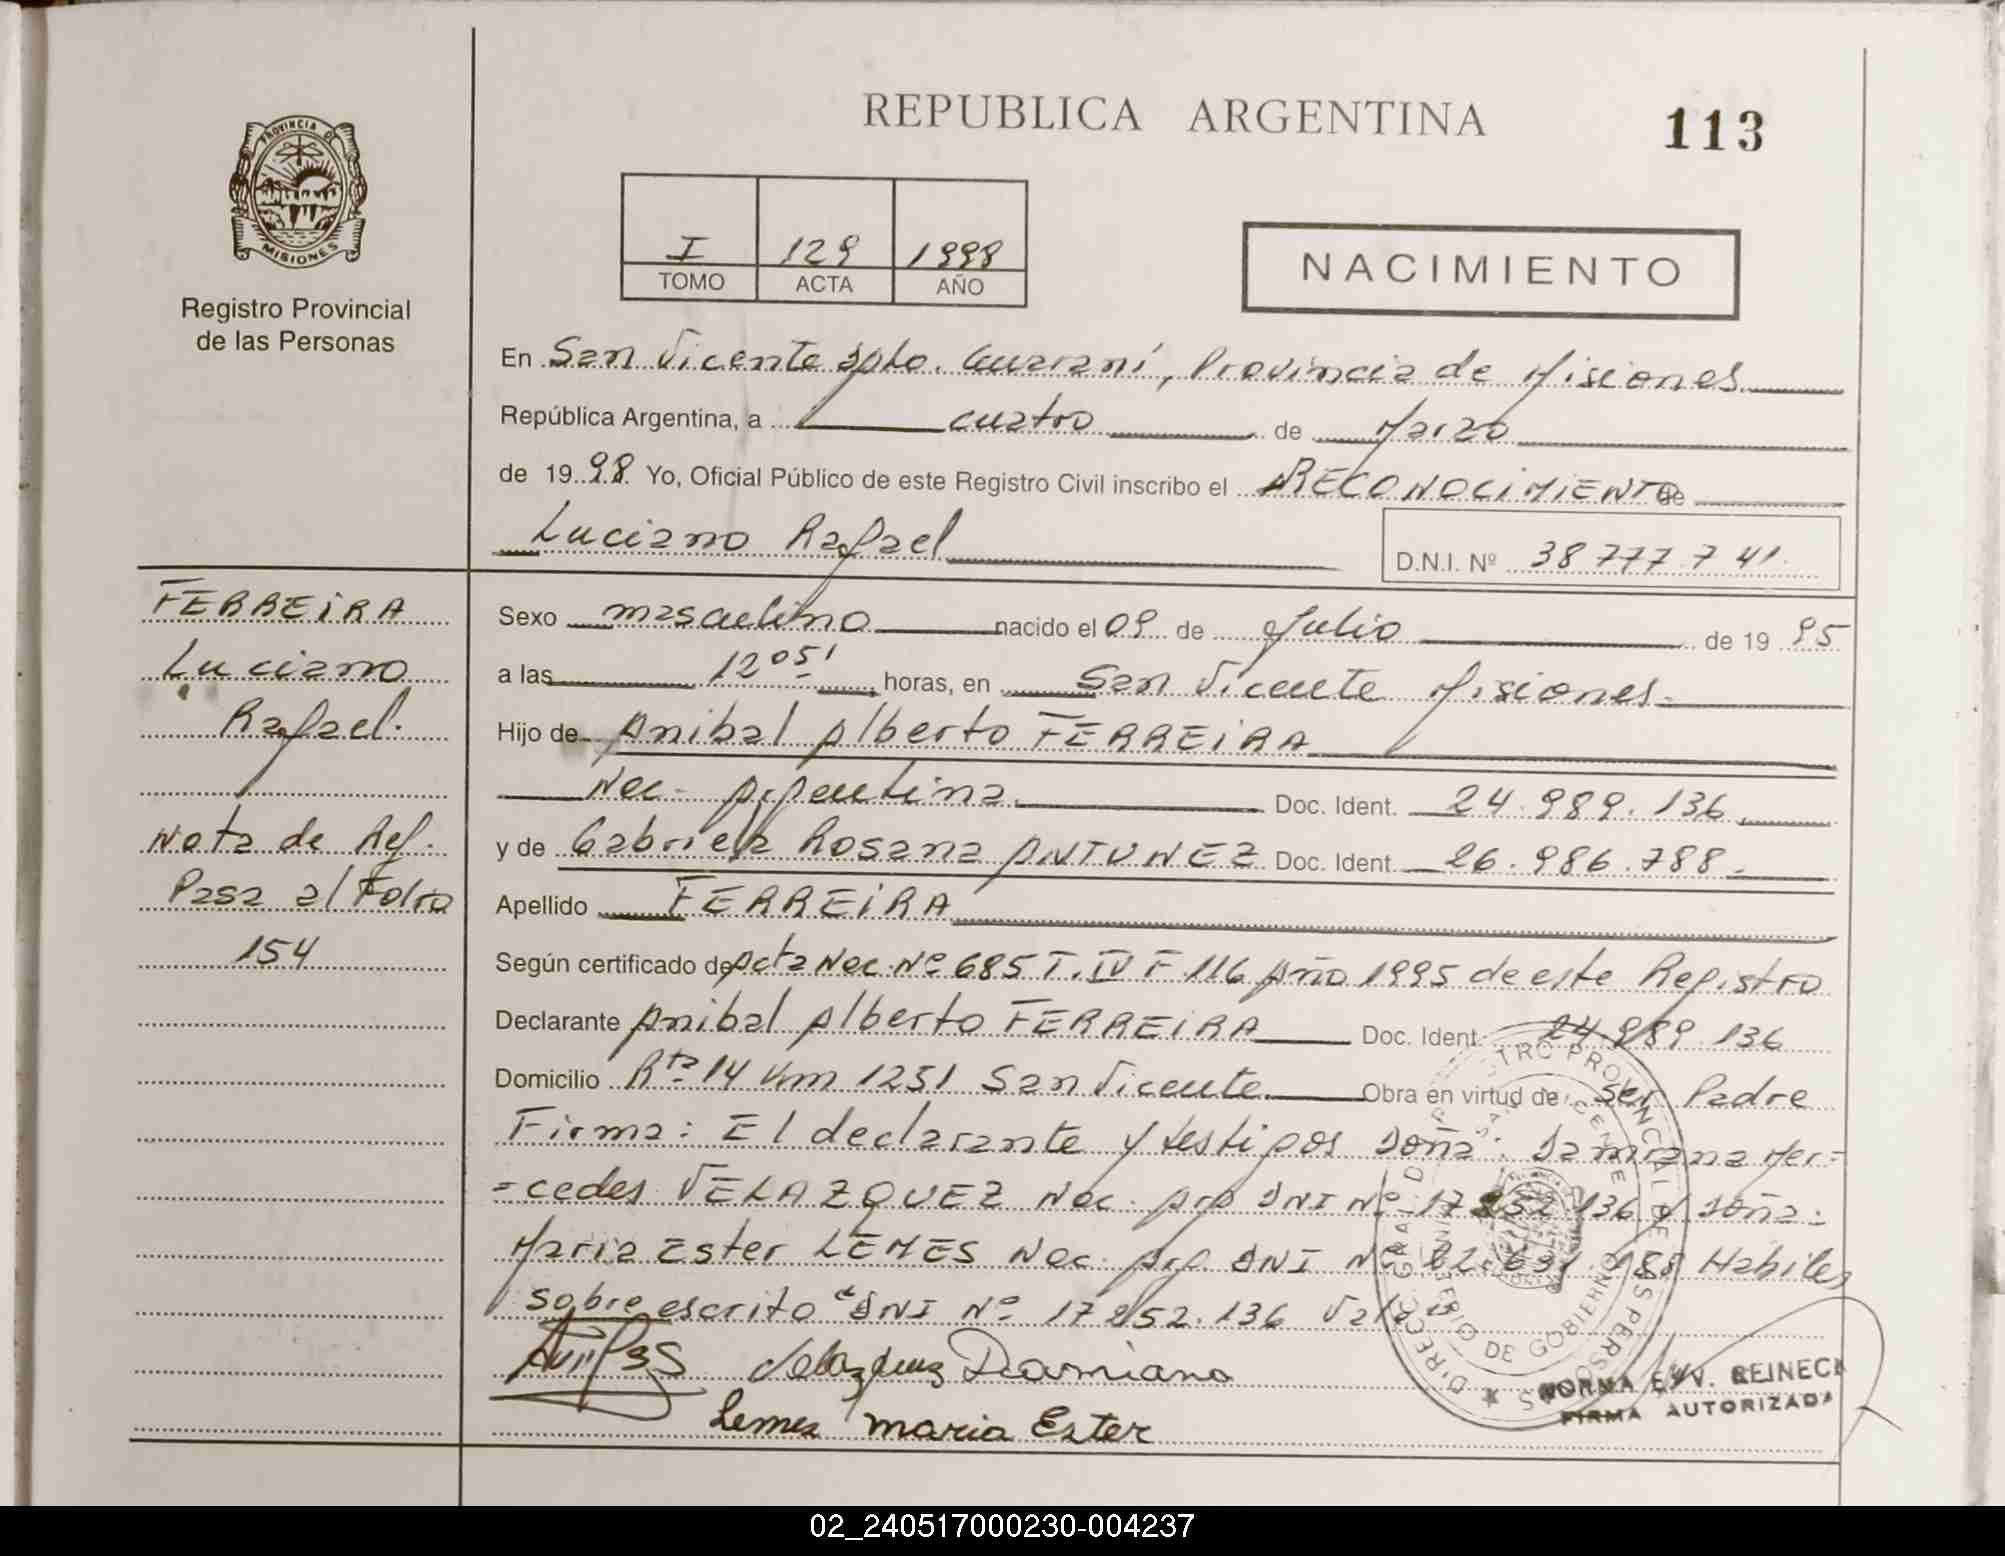 REPUBLICA ARGENTINA
113
PROVINCIA DE
MISIONES
Registro Provincial
de las Personas
I 129 1998
TOMO ACTA AÑO
NACIMIENTO
En San Vicente Dpto. Guaraní, Provincia de Misiones
República Argentina, a cuatro de Marzo
de 1998 Yo, Oficial Público de este Registro Civil inscribo el RECONOCIMIENTO de
Luciano Rafael
D.N.I. Nº 38 777 741.
FERREIRA
Luciano
Rafael.
Nota de Ref.
Pasa al Folio
154
Sexo masculino nacido el 09 de Julio de 1995
a las 12 05' horas, en San Vicente Misiones.
Hijo de Anibal Alberto FERREIRA
Nac. Argentina. Doc. Ident. 24.989.136.
y de Gabriela Rosana ANTUNEZ Doc. Ident. 26.986.788.
Apellido FERREIRA
Según certificado de Acta Nac. Nº 685 T. IV F 116 Año 1995 de este Registro
Declarante Anibal Alberto FERREIRA Doc. Ident. 24.989.136
Domicilio Rta 14 Km 1251 San Vicente. Obra en virtud de Ser Padre
Firma: El declarante y testigos Doña: Damiana Mer=
=cedes VELAZQUEZ Nac. Arg. DNI Nº 17 252.136 y Doña:
Maria Ester LEMES Nac. Arg. DNI Nº 188 Habiles
sobre escrito "DNI Nº 17 252.136 Vale"
Velazquez Damiana
Lemes Maria Ester
DIREC. GRAL. DEL REGISTRO PROVINCIAL DE LAS PERSONAS
SAN VICENTE
MINISTERIO DE GOBIERNO
NORMA EVV. REINECK
FIRMA AUTORIZADA
02_240517000230-004237